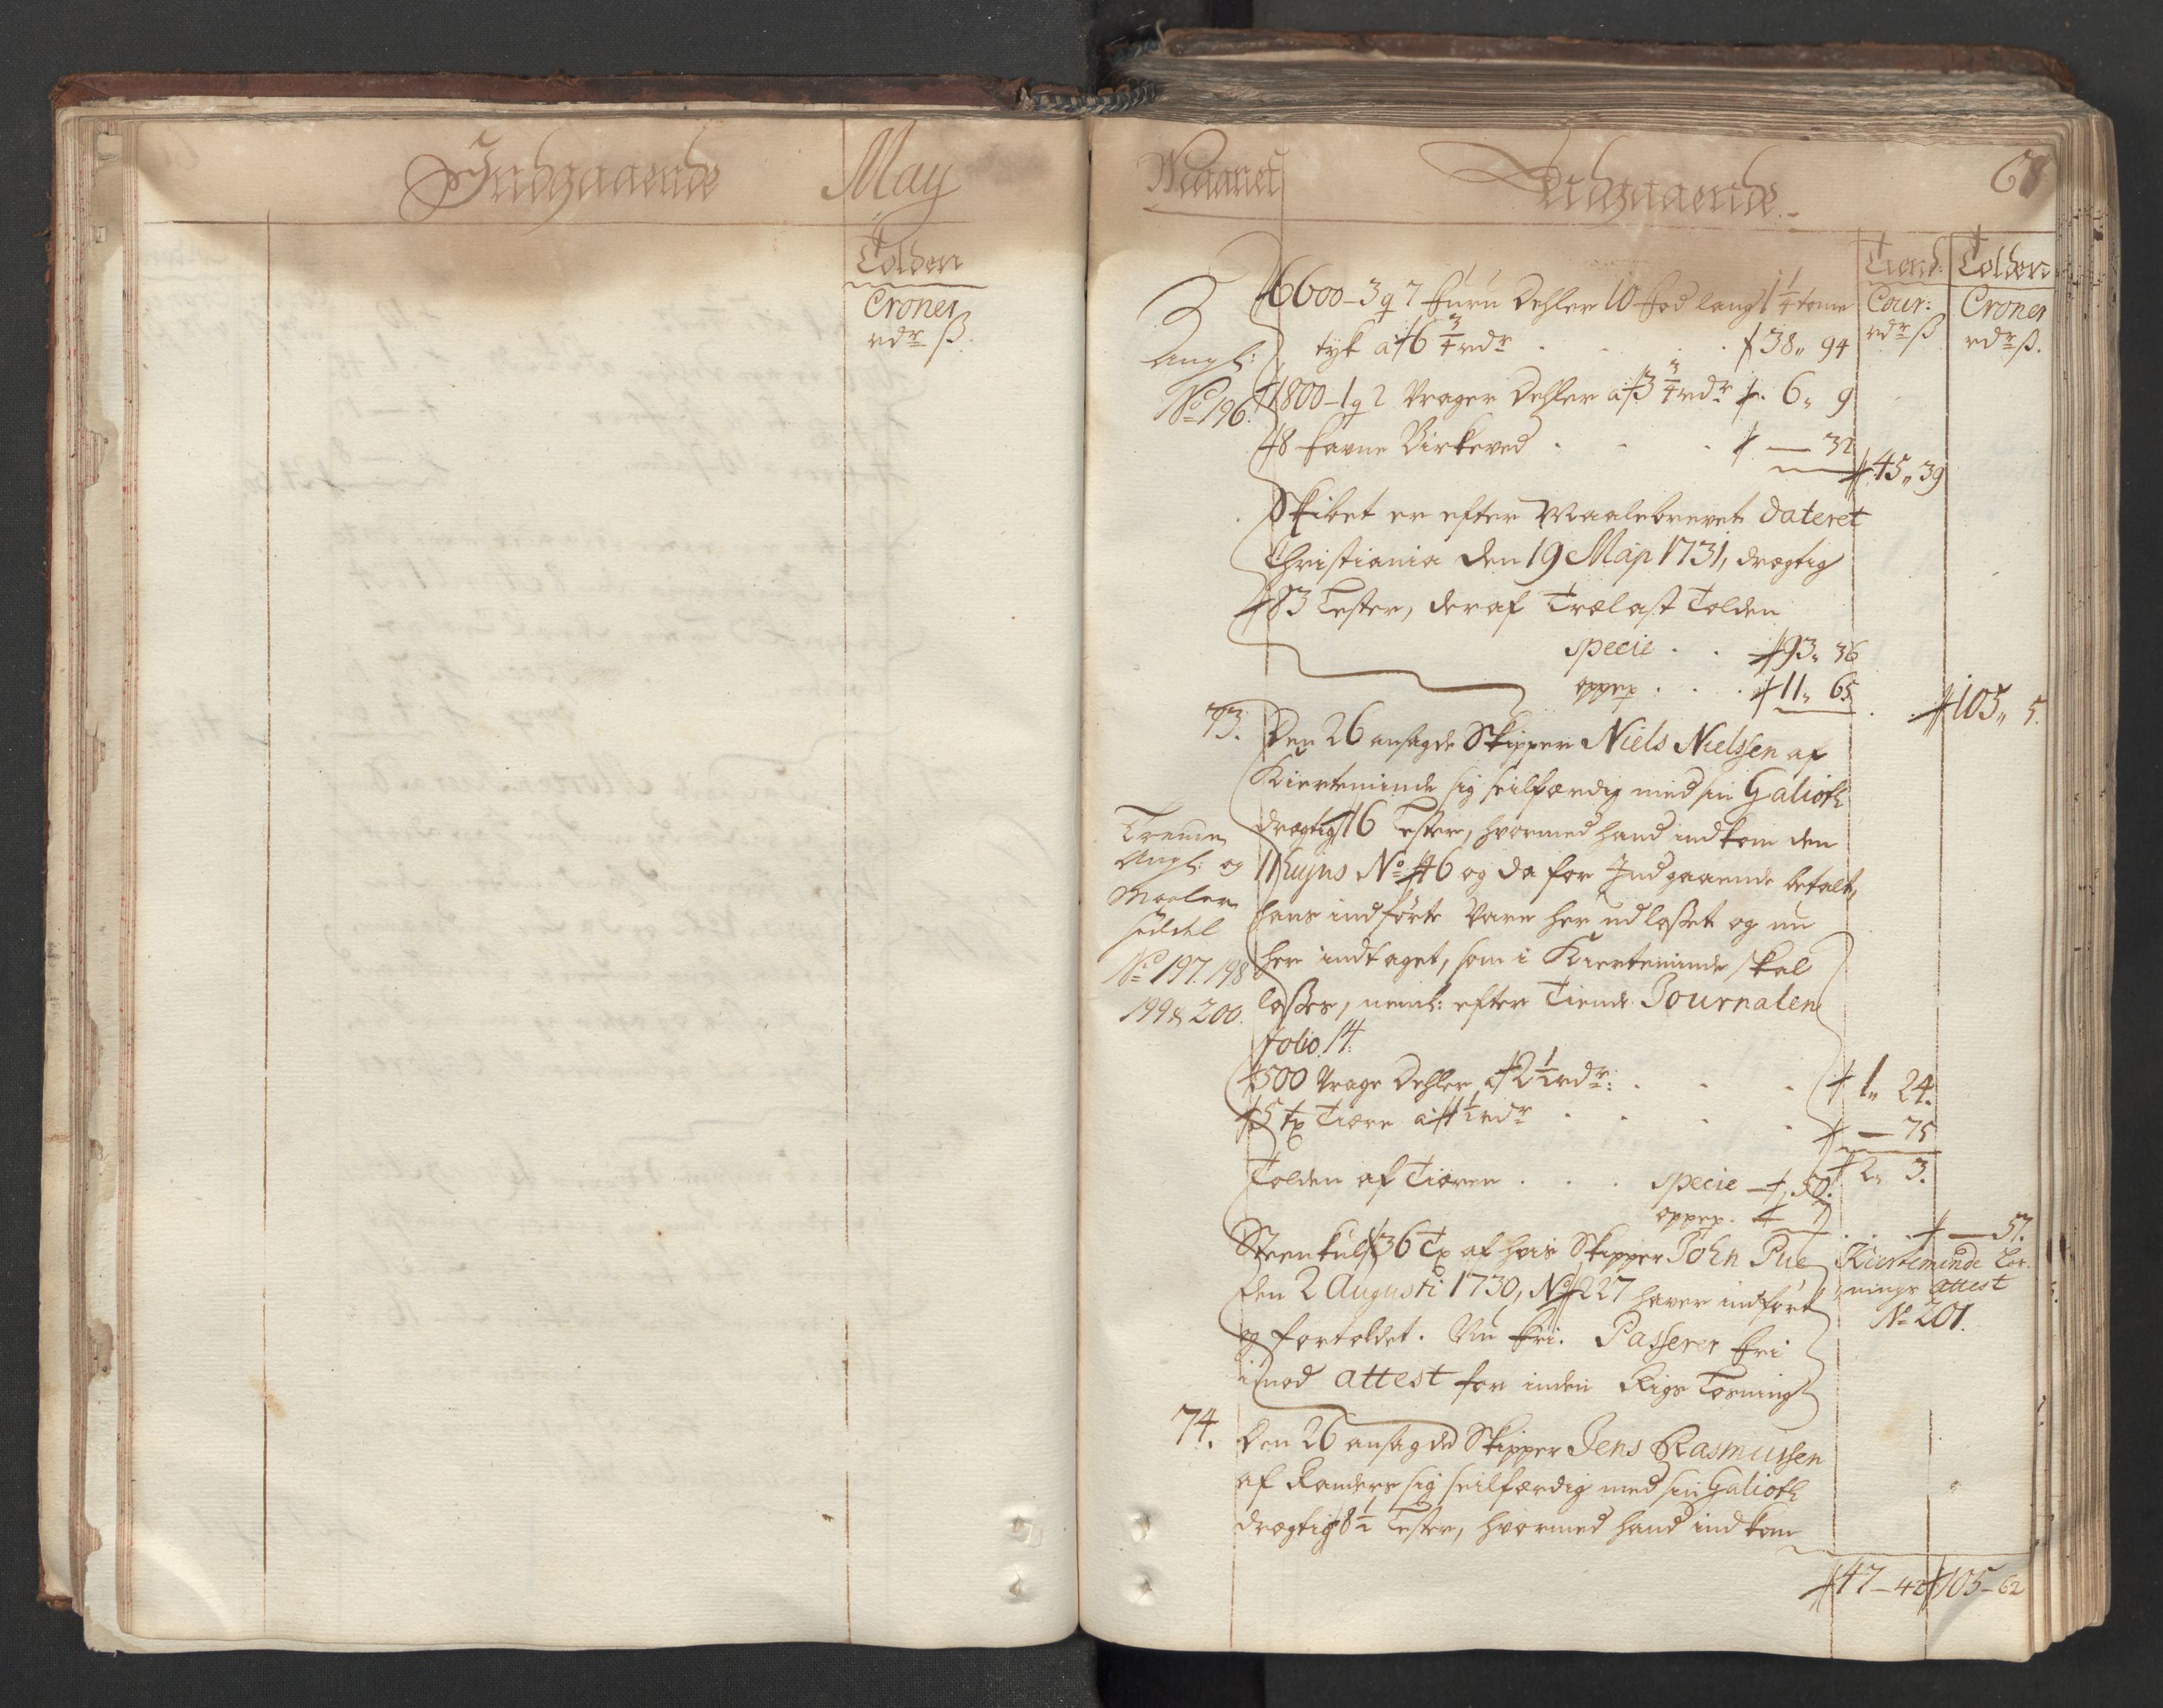 Indgaaende May
Tolden
Croner
rdr ß.
Maanet Udgaaende 68
Tiend: Tolden
Cour: Croner
rdr ß rdr ß.
Angl:
No 196.
6600 - 3 q 7 furu Dehler 10 fod lang 1 1/4 tome
tyk a 6 3/4 rdr . . . 38 „ 94
1800 - 1 q 2 Vrager Dehler a 3 3/4 rdr . 6 „ 9
8 favne Birkeved . . . — 32
45 „ 39
Skibet er efter Maalebrevet dateret
Christiania den 19 Maji 1731, drægtig
83 Lester, deraf Trælast Tolden
specie . . 93 „ 36
. . . 11 „ 65
105 „ 5.
73. Den 26 ansagde Skipper Niels Nielssen af
Kierteminde sig seilfærdig med sin Galioth
drægtig 16 Lester, hvormed hand indkom den
11 hujus No 46 og da for Indgaaende betalt,
hans indførte Vare her udlosset og nu
her indtaget, som i Kierteminde skal
losses, neml: efter Tiende Journalen
folio 14.
Angl: og
Maaler
seddel
No 197. 198
199 & 200.
500 Vrage Dehler a 2 1/2 rdr: . . . 1 „ 24.
5 tr Tiære a 1 1/2 rdr . . . — 75
2 „ 3.
Tolden af Tiæren . . . specie — 50.
7
— 57.
Steenkul 36 Tr af hvis Skipper John Pue
den 2 Augusti 1730, No 227 haver indført
og fortoldet. Nu fri. Passerer fri
imod attest for inden Rigs Losning
Kierteminde Los-
nings attest
No 201.
74. Den 26 ansagde Skipper Jens Rasmussen
af Randers sig seilfærdig med sin Galioth
drægtig 8 1/2 Lester, hvormed hand indkom
47 - 42 105 - 62